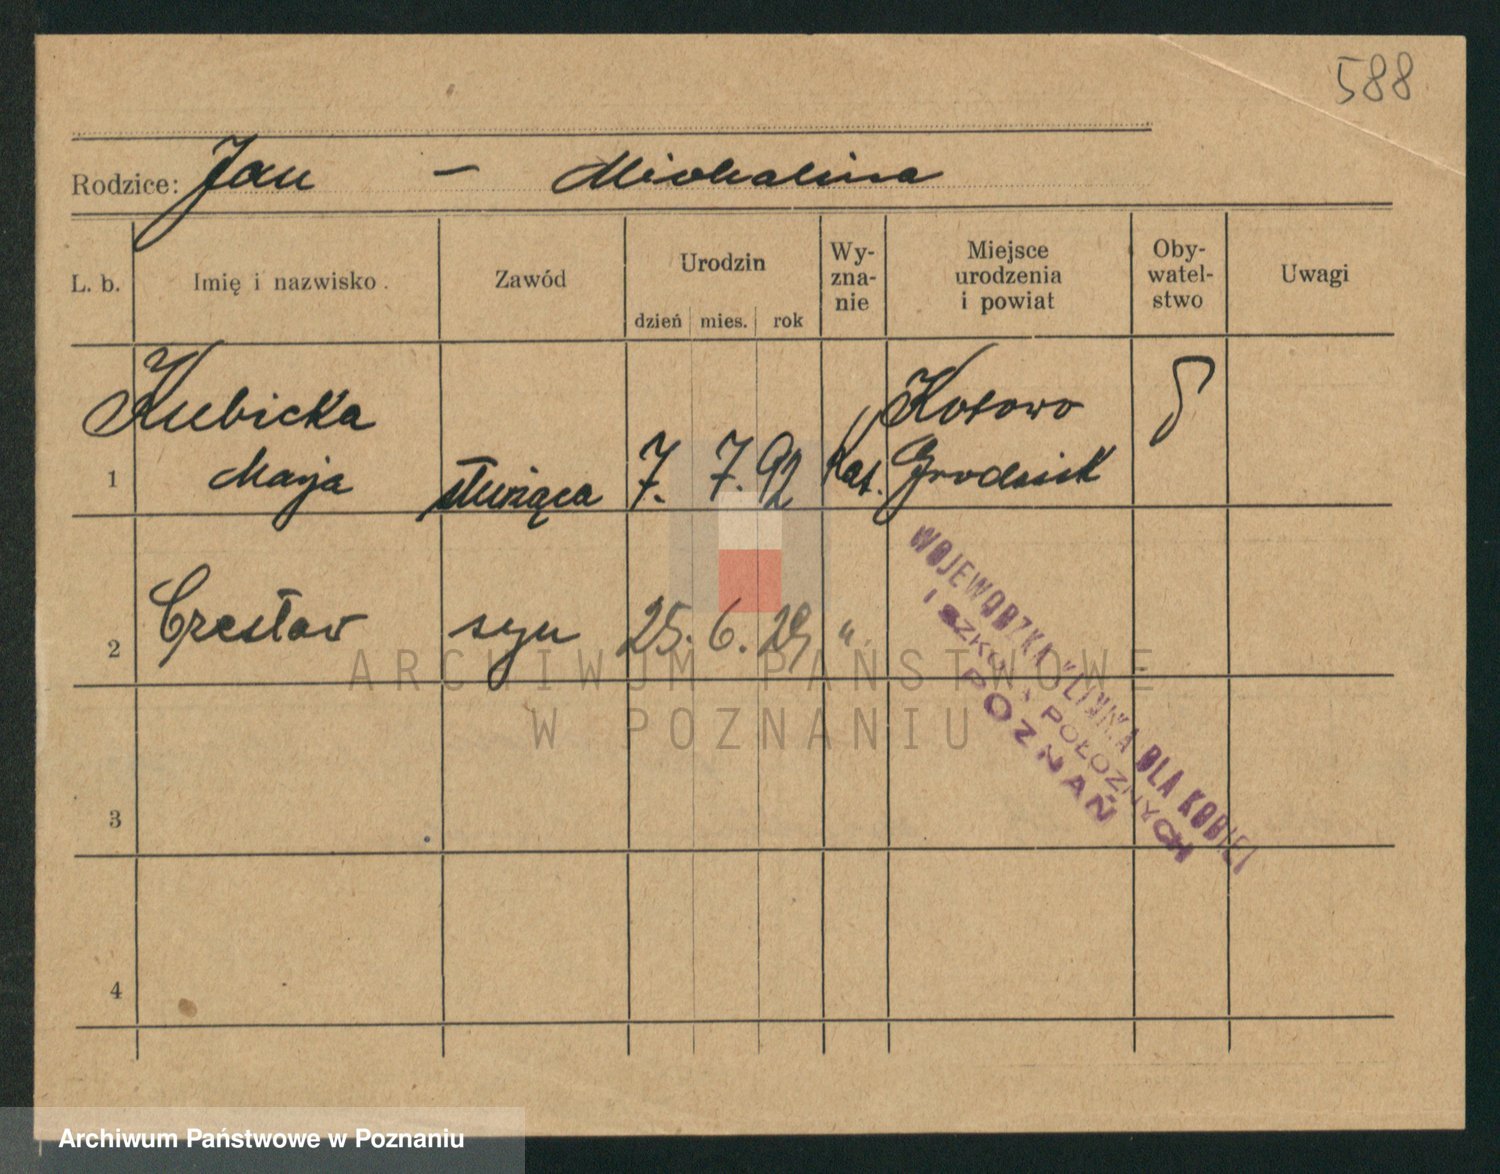 588
Rodzice: Jan - Michalina
L. b. Imię i nazwisko. Zawód Urodzin dzień mies. rok Wy-zna-nie Miejsce urodzenia i powiat Oby-watel-stwo Uwagi
Kubicka Kotowo
1 Marja służąca 7. 7. 92 kat. Grodzisk
2 Czesław syn 25. 6. 29 "
WOJEWÓDZKA KLINIKA DLA KOBIET
I SZKOŁA POŁOŻNYCH
POZNAŃ
3
4
ARCHIWUM PAŃSTWOWE
W POZNANIU
Archiwum Państwowe w Poznaniu